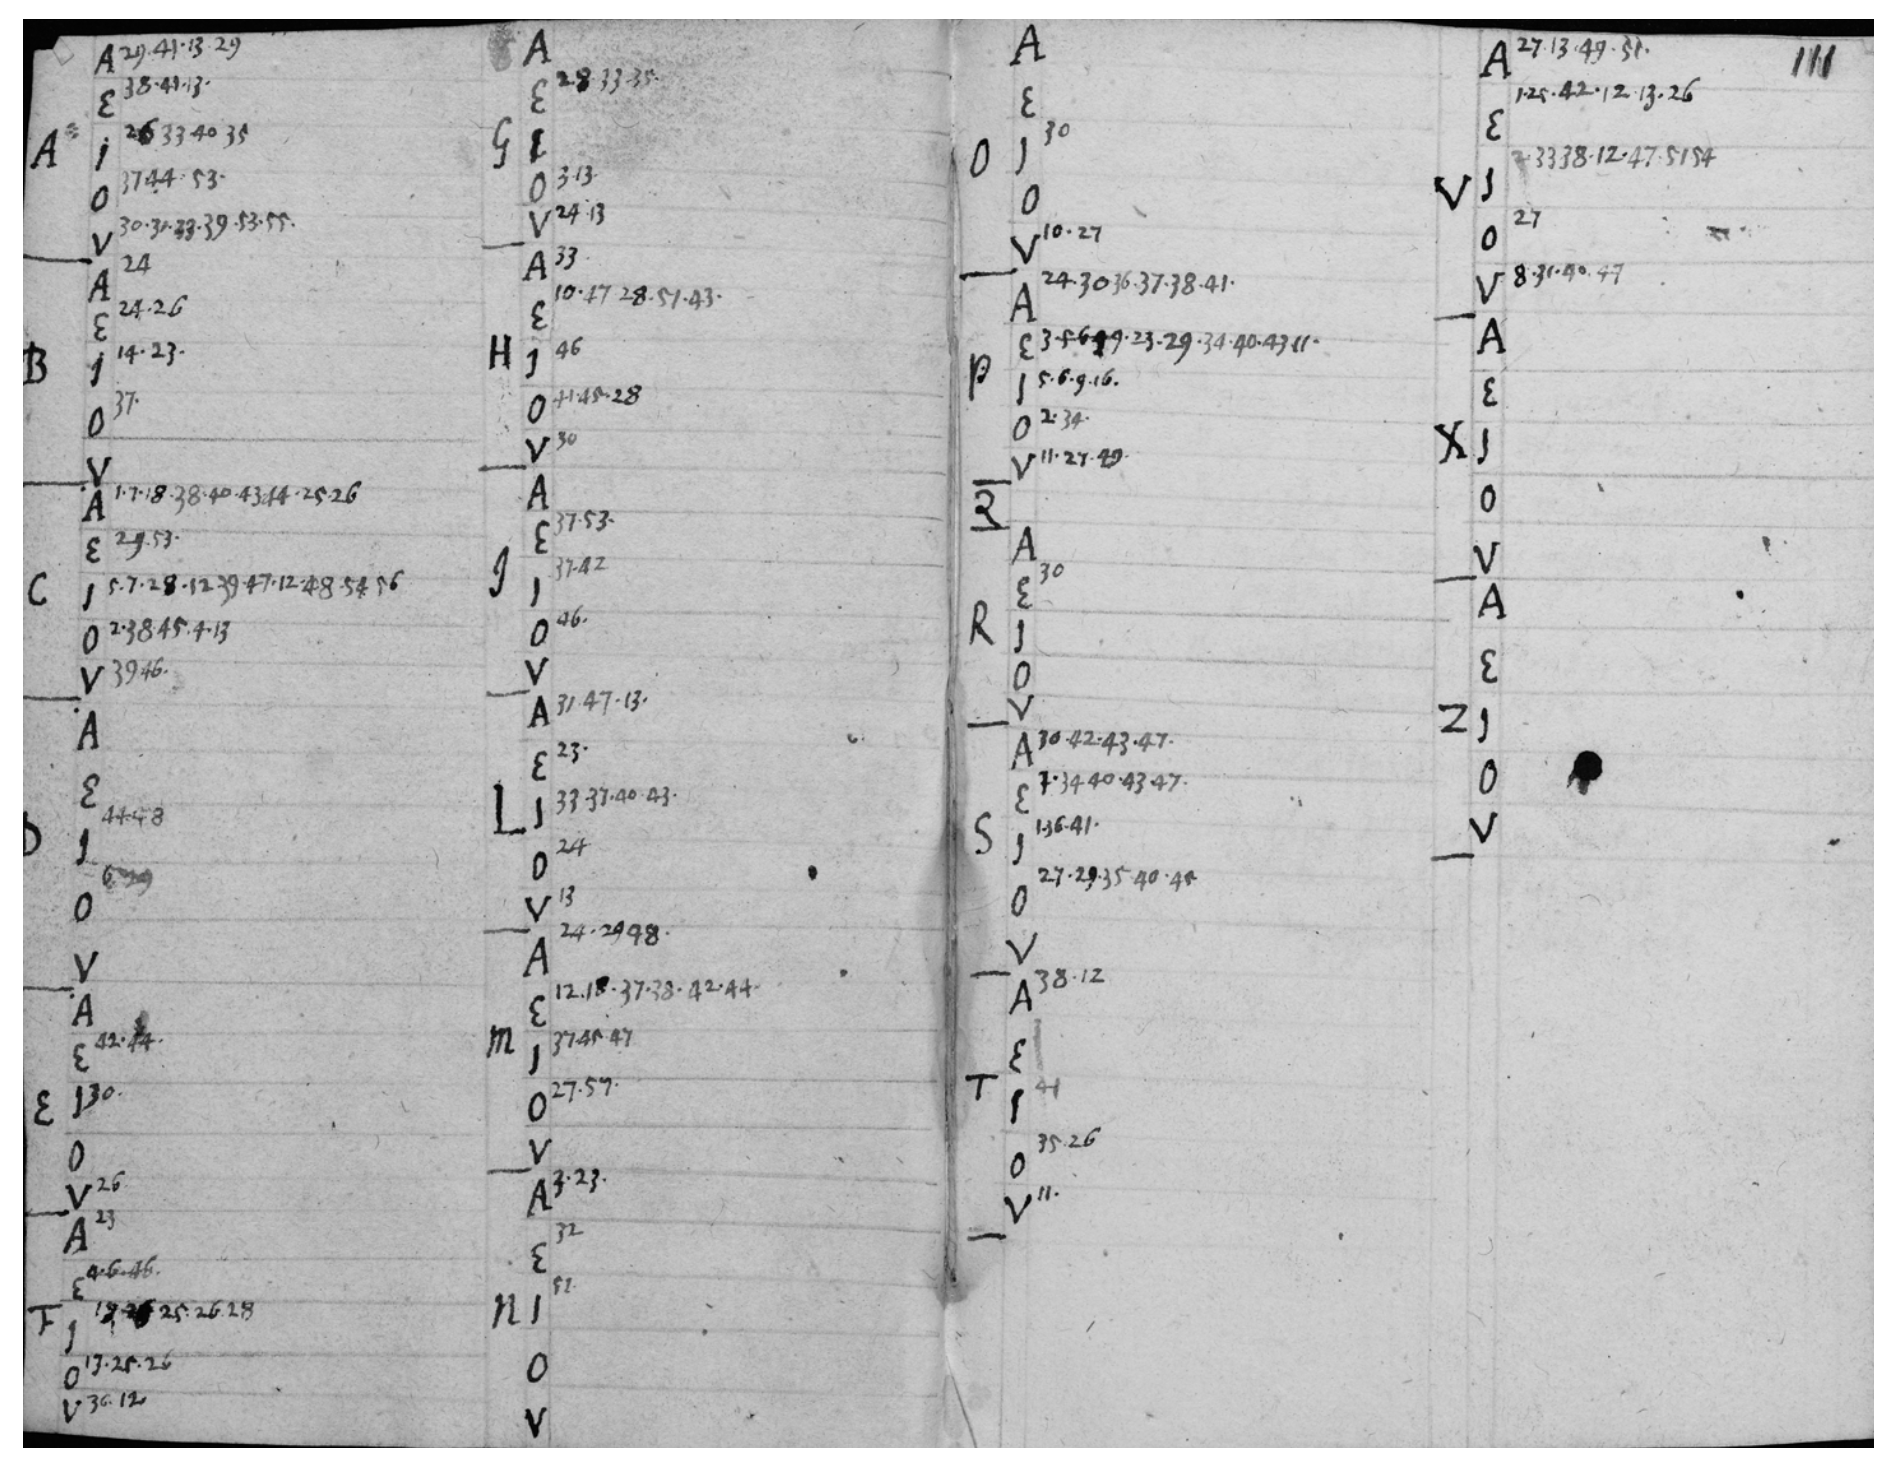 A 29.41.13.29
Ɛ 38.41.13.
A J 26 33 40 35
O 37 44. 53.
V 30.31.33.39.53.55.
A 24
Ɛ 24.26
B J 14.23.
O 37.
V
A 1.7.18.38.40.43.44.25.26
Ɛ 29.53.
C J 5.7.28.12 39.47.12.48.54.56
O 2.38.45.4.13
V 39 46.
A
Ɛ
D J 44.48
O 6
V
A
Ɛ 42.44.
Ɛ J 30.
O
V 26
A 23
Ɛ 4.6.46.
F J 25.26.28
O 13.25.26
V 36.12
A
Ɛ 28 33.35.
G J
O 3.13.
V 24.13
A 33
Ɛ 10.47 28.51.43.
H J 46
O 41.45.28
V 30
A
Ɛ 37.53.
J J 37.42
O 46.
V
A 31.47.13.
Ɛ 23.
L J 33.37.40.43.
O 24
V 13
A 24.29 48.
Ɛ 12.18.37.38.42.44.
M J 37 45 47
O 27.57.
V
A 3.23.
Ɛ 32
N J 52
O
V
A
Ɛ
O J 30
O
V 10.27
A 24.30 36.37.38.41.
Ɛ 3.5.6 19.23.29.34.40.43 11.
P J 5.6.9.16.
O 2.34.
V 11.27.49.
Q
A
Ɛ 30
R J
O
V
A 30.42.43.47.
Ɛ 7.34 40.43 47.
S J 1.36.41.
O 27.29.35 40.45
V
A 38.12
Ɛ
T J 41
O 35.26
V 11.
111
A 27.13.49.51.
Ɛ 1.25.42.12.13.26
V J 2.33 38.12.47.51 54
O 27
V 8.31.40.47
A
Ɛ
X J
O
V
A
Ɛ
Z J
O
V